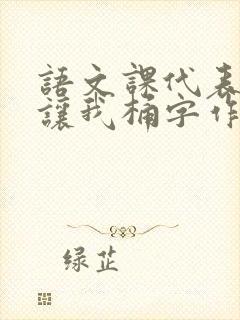 語文課代表
讓我桶字作
绿芷